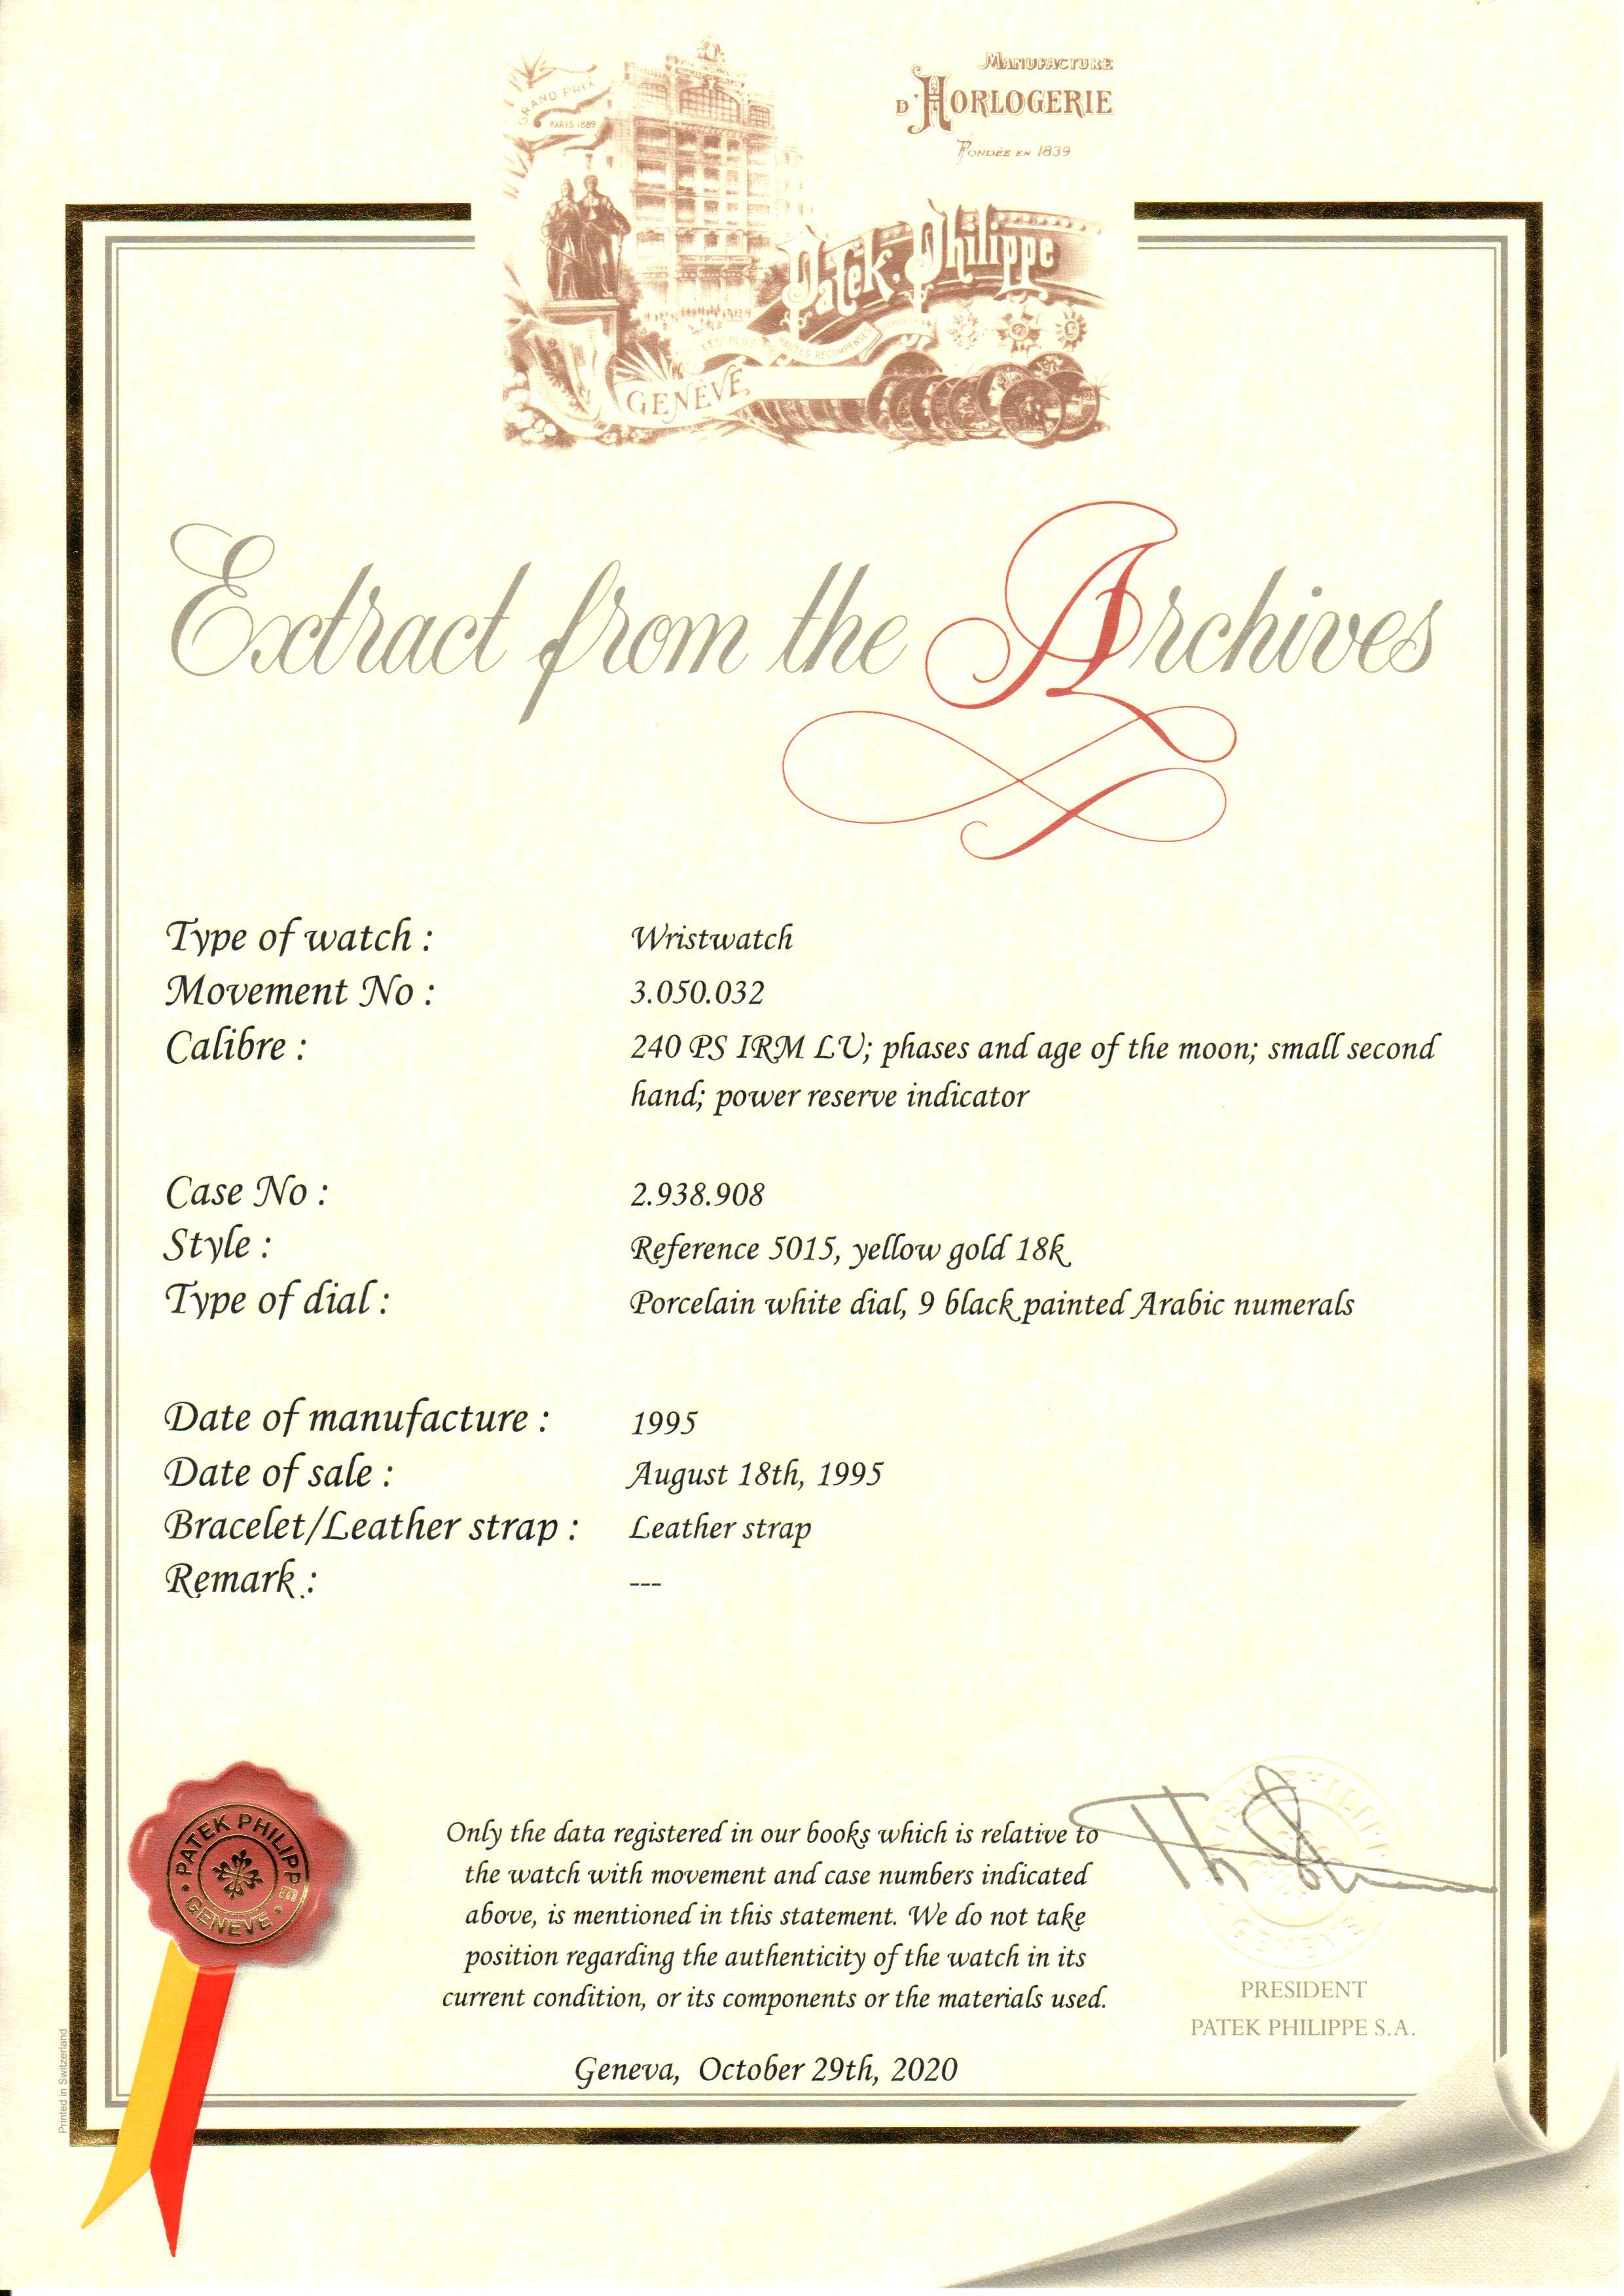 MANUFACTURE
D'HORLOGERIE
FONDÉE EN 1839
GRAND PRIX
PARIS 1889
Patek Philippe
LES PLUS HAUTES RECOMPENSES
GENÈVE
Extract from the Archives
Type of watch : Wristwatch
Movement No : 3.050.032
Calibre : 240 PS IRM LU; phases and age of the moon; small second
hand; power reserve indicator
Case No : 2.938.908
Style : Reference 5015, yellow gold 18k
Type of dial : Porcelain white dial, 9 black painted Arabic numerals
Date of manufacture : 1995
Date of sale : August 18th, 1995
Bracelet/Leather strap : Leather strap
Remark : ---
PATEK PHILIPPE
GENEVE
Only the data registered in our books which is relative to
the watch with movement and case numbers indicated
above, is mentioned in this statement. We do not take
position regarding the authenticity of the watch in its
current condition, or its components or the materials used.
PRESIDENT
PATEK PHILIPPE S.A.
Geneva, October 29th, 2020
Printed in Switzerland